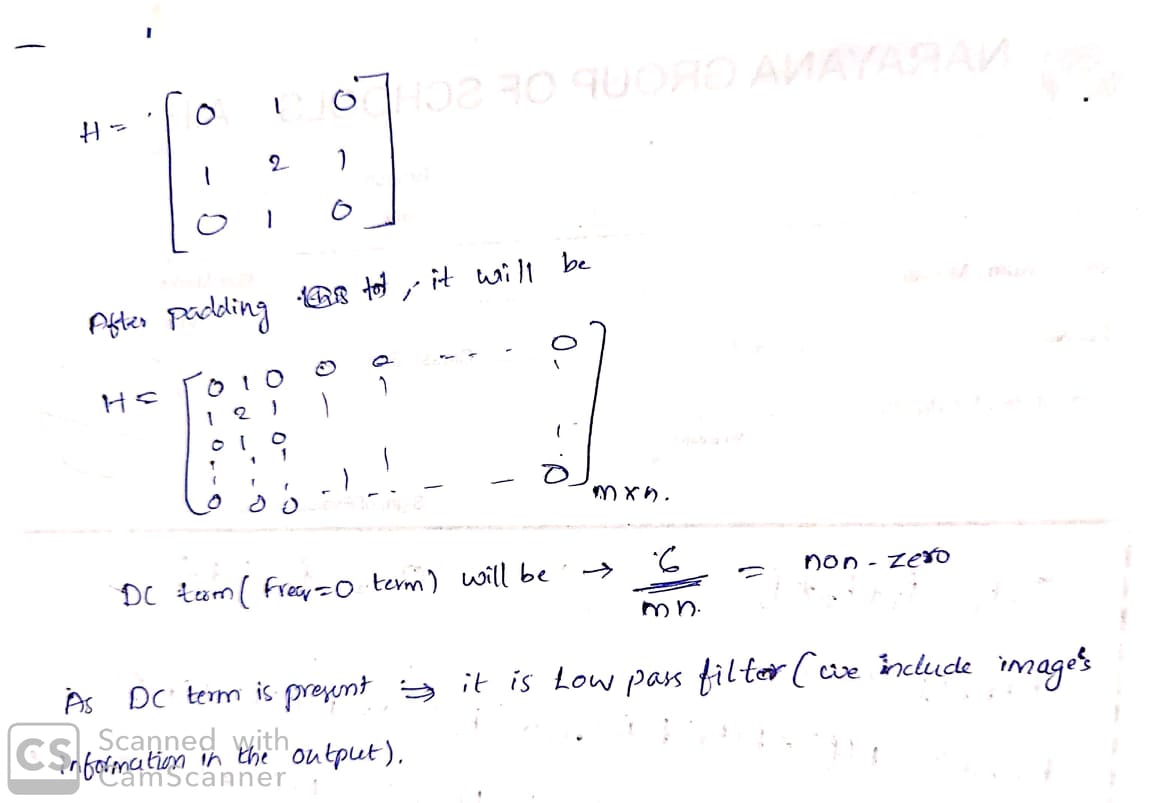 H = [ 0 1 0
1 2 1
0 1 0 ]
After padding , it will be
H = [ 0 1 0 0 0 - - - 0
1 2 1
0 1 0
0 0 0 - - - - 0 ] m×n.
DC term ( Freq=0 term) will be → 6/mn. = non-zero
As DC term is present ⇒ it is Low pass filter ( we include image's
information in the output).
NARAYANA GROUP OF SCHOOLS
CS Scanned with
CamScanner